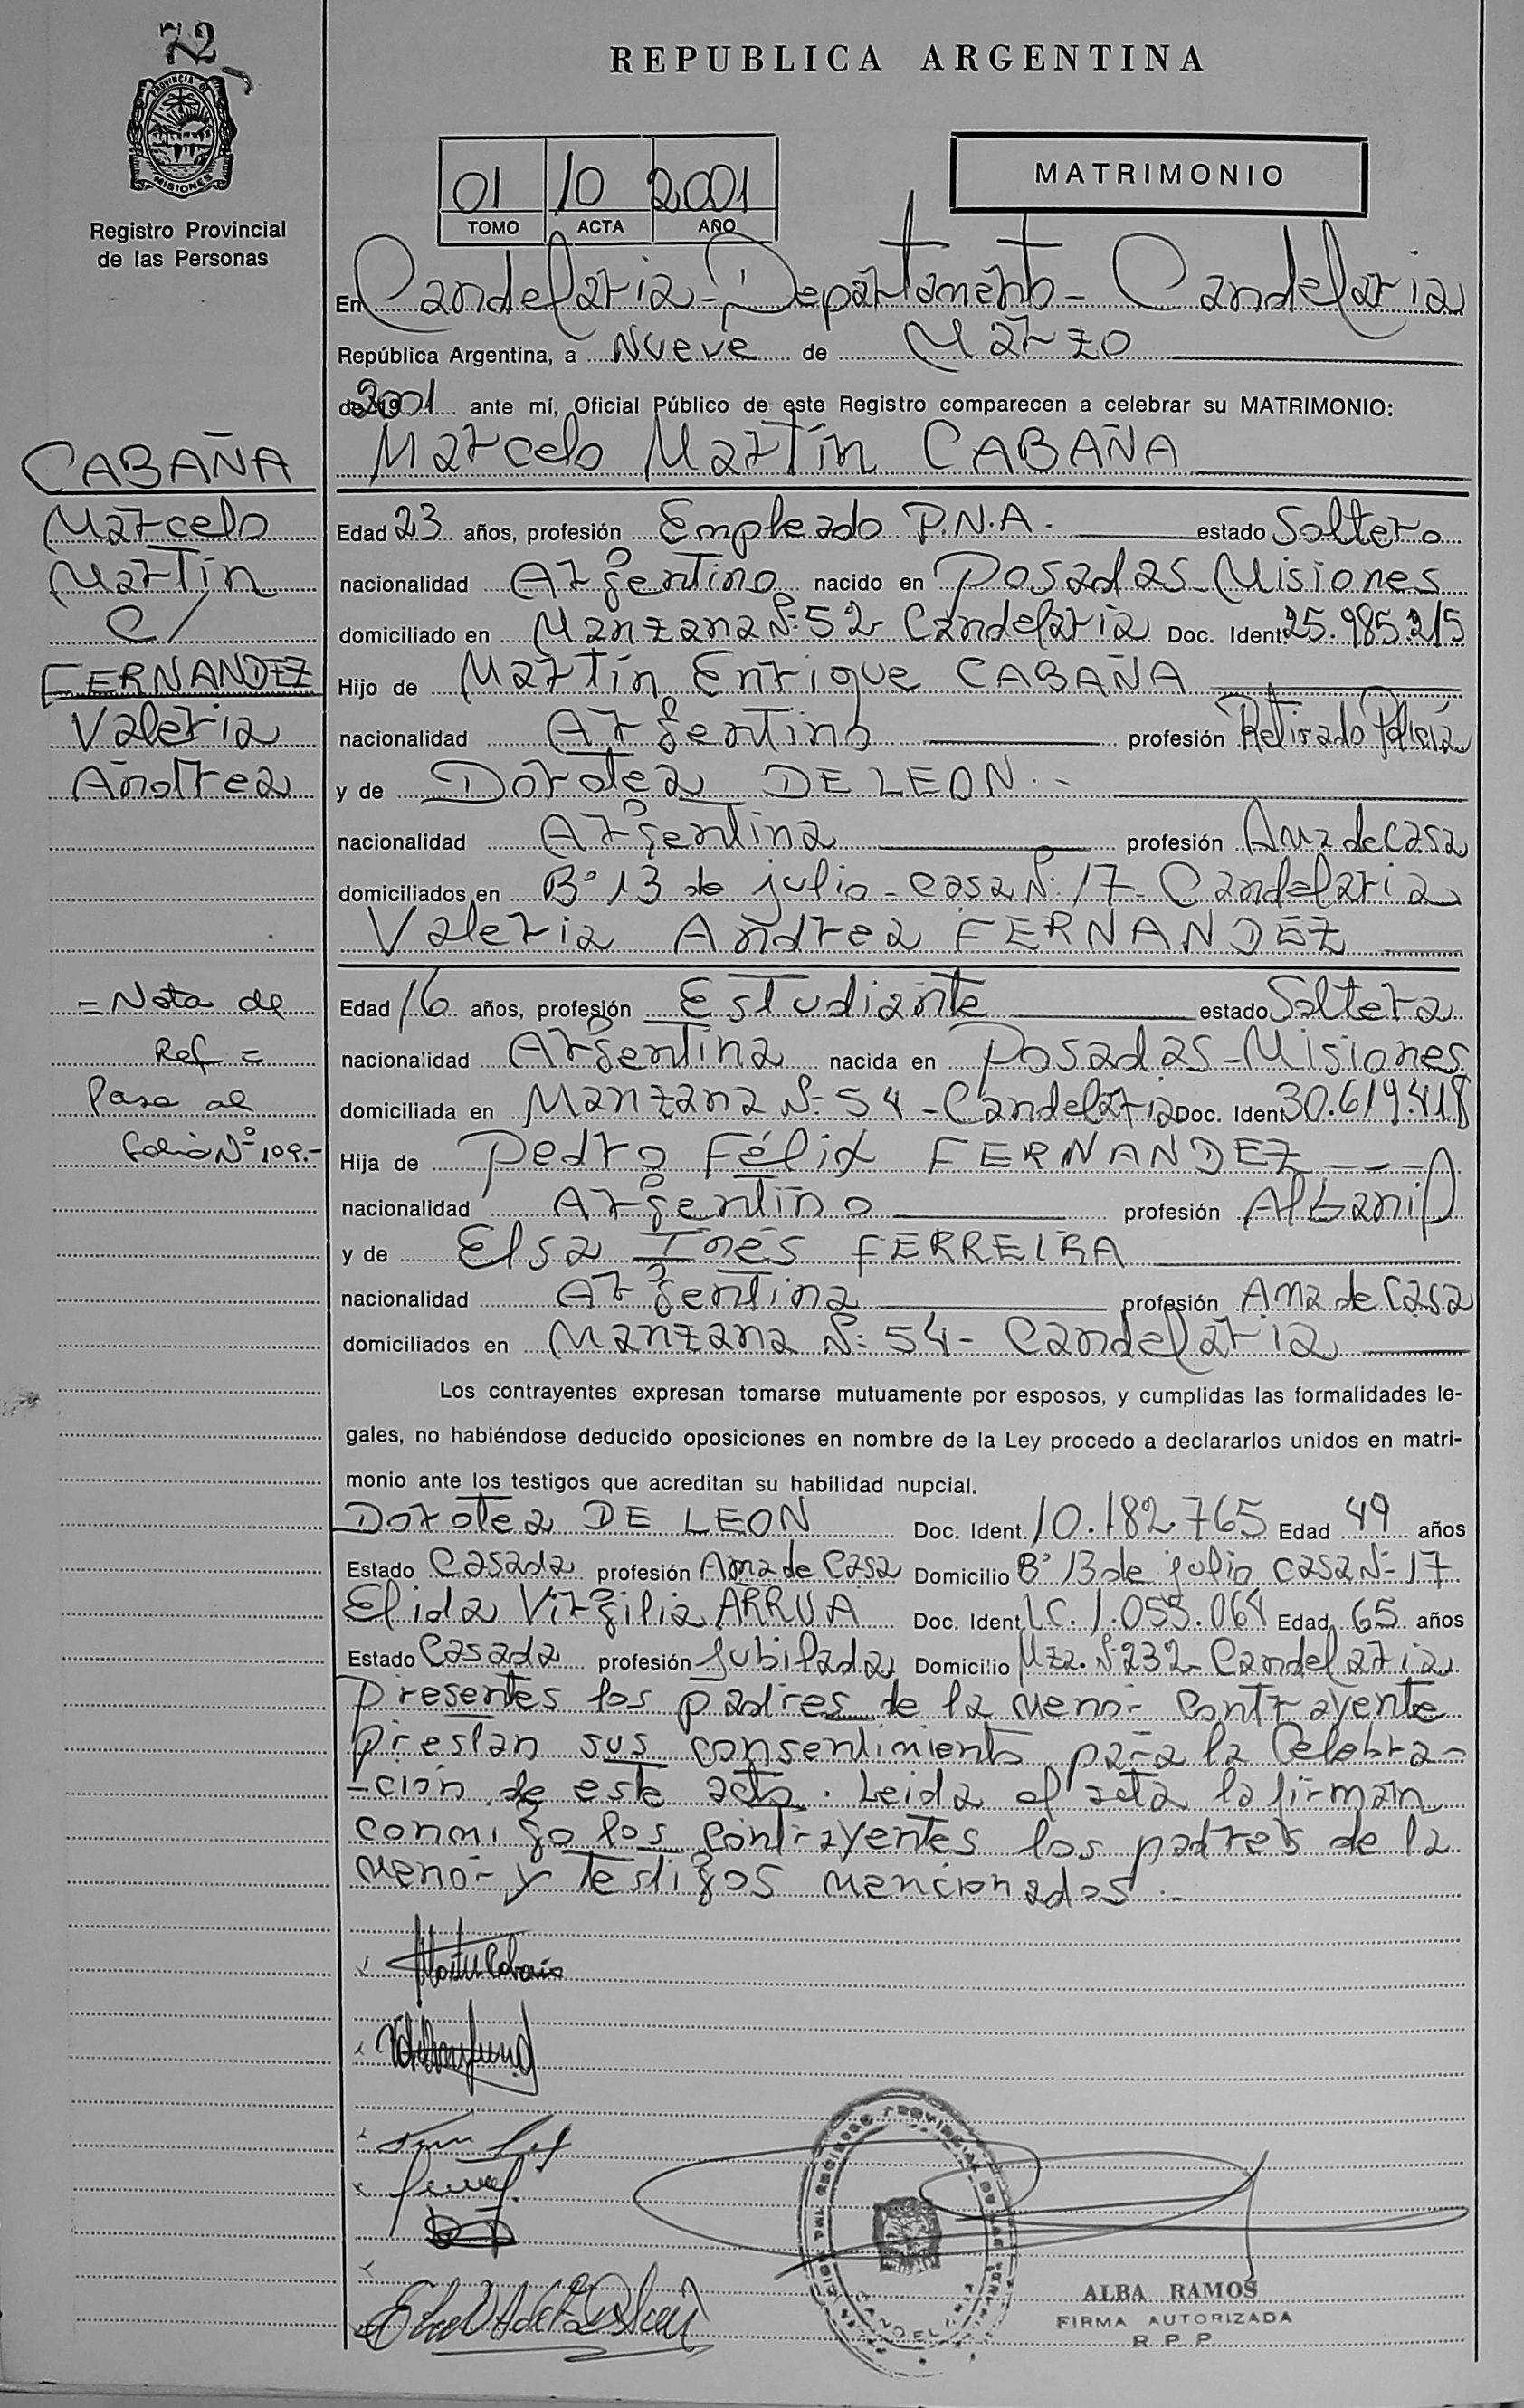 72
PROVINCIA DE
MISIONES
Registro Provincial
de las Personas
REPUBLICA ARGENTINA
01 10 2001
TOMO ACTA AÑO
MATRIMONIO
En Candelaria - Departamento - Candelaria
República Argentina, a Nueve de Marzo
de 2001 ante mí, Oficial Público de este Registro comparecen a celebrar su MATRIMONIO:
Marcelo Martín CABAÑA
Edad 23 años, profesión Empleado P.N.A. estado Soltero
nacionalidad Argentino nacido en Posadas - Misiones
domiciliado en Manzana Nº 52 Candelaria Doc. Ident. 25.985.215
Hijo de Martín Enrique CABAÑA
nacionalidad Argentino profesión Retirado Policía
y de Dorotea DE LEON.-
nacionalidad Argentina profesión Ama de Casa
domiciliados en Bº 13 de julio - casa Nº 17 - Candelaria
Valeria Andrea FERNANDEZ
Edad 16 años, profesión Estudiante estado Soltera
nacionalidad Argentina nacida en Posadas - Misiones
domiciliada en Manzana Nº 54 - Candelaria Doc. Ident 30.619.418
Hija de Pedro Félix FERNANDEZ
nacionalidad Argentino profesión Albañil
y de Elsa Inés FERREIRA
nacionalidad Argentina profesión Ama de Casa
domiciliados en Manzana Nº 54 - Candelaria
Los contrayentes expresan tomarse mutuamente por esposos, y cumplidas las formalidades le-
gales, no habiéndose deducido oposiciones en nombre de la Ley procedo a declararlos unidos en matri-
monio ante los testigos que acreditan su habilidad nupcial.
Dorotea DE LEON Doc. Ident. 10.182.765 Edad 49 años
Estado Casada profesión Ama de Casa Domicilio Bº 13 de julio casa Nº 17
Elida Virgilia ARRUA Doc. Ident L.C. 1.055.064 Edad 65 años
Estado Casada profesión Jubilada Domicilio Mza. Nº 232 - Candelaria
Presentes los padres de la menor contrayente
prestan sus consentimiento para la Celebra-
-ción de este acto. Leida el acta la firman
conmigo los contrayentes los padres de la
menor y testigos mencionados.-
CABAÑA
Marcelo
Martín
C/
FERNANDEZ
Valeria
Andrea
= Nota de
Ref =
Pasa al
folio Nº 109.-
ALBA RAMOS
FIRMA AUTORIZADA
R. P. P.